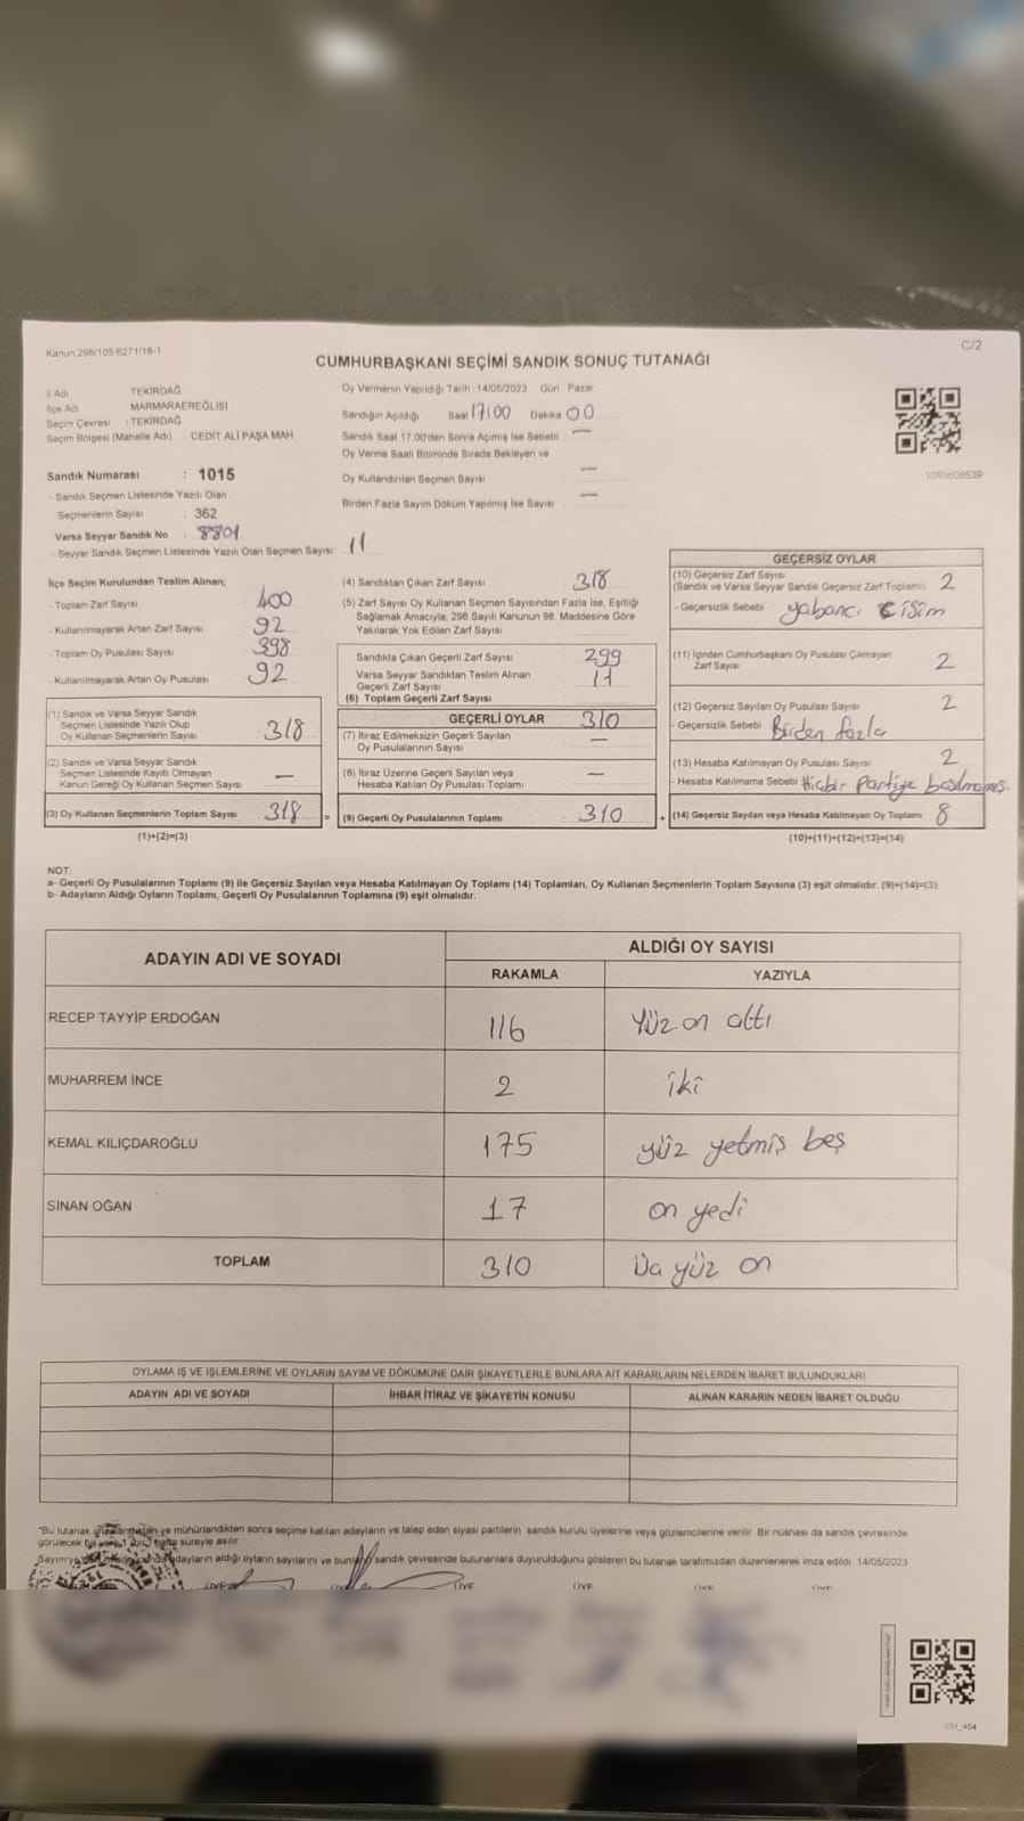 Kanun:298/105-6271/16-1
C/2
CUMHURBAŞKANI SEÇİMİ SANDIK SONUÇ TUTANAĞI
İl Adı : TEKİRDAĞ
İlçe Adı : MARMARAEREĞLİSİ
Seçim Çevresi : TEKİRDAĞ
Seçim Bölgesi (Mahalle Adı) : CEDİT ALİ PAŞA MAH.
Sandık Numarası : 1015
- Sandık Seçmen Listesinde Yazılı Olan
Seçmenlerin Sayısı : 362
Varsa Seyyar Sandık No : 8801
- Seyyar Sandık Seçmen Listesinde Yazılı Olan Seçmen Sayısı: 11
Oy Vermenin Yapıldığı Tarih : 14/05/2023 Gün: Pazar
Sandığın Açıldığı Saat 17:00 Dakika 00
Sandık Saat 17.00'den Sonra Açılmış İse Sebebi —
Oy Verme Saati Bitiminde Sırada Bekleyen ve
Oy Kullandırılan Seçmen Sayısı —
Birden Fazla Sayım Döküm Yapılmış İse Sayısı —
İlçe Seçim Kurulundan Teslim Alınan;
- Toplam Zarf Sayısı 400
- Kullanılmayarak Artan Zarf Sayısı 92
- Toplam Oy Pusulası Sayısı 398
- Kullanılmayarak Artan Oy Pusulası 92
(1) Sandık ve Varsa Seyyar Sandık
Seçmen Listesinde Yazılı Olup
Oy Kullanan Seçmenlerin Sayısı 318
(2) Sandık ve Varsa Seyyar Sandık
Seçmen Listesinde Kayıtlı Olmayan
Kanun Gereği Oy Kullanan Seçmen Sayısı —
(3) Oy Kullanan Seçmenlerin Toplam Sayısı 318
(1)+(2)=(3)
(4) Sandıktan Çıkan Zarf Sayısı 318
(5) Zarf Sayısı Oy Kullanan Seçmen Sayısından Fazla İse, Eşitliği
Sağlamak Amacıyla, 298 Sayılı Kanunun 98. Maddesine Göre
Yakılarak Yok Edilen Zarf Sayısı
Sandıkta Çıkan Geçerli Zarf Sayısı 299
Varsa Seyyar Sandıktan Teslim Alınan
Geçerli Zarf Sayısı 11
(6) Toplam Geçerli Zarf Sayısı
GEÇERLİ OYLAR 310
(7) İtiraz Edilmeksizin Geçerli Sayılan
Oy Pusulalarının Sayısı —
(8) İtiraz Üzerine Geçerli Sayılan veya
Hesaba Katılan Oy Pusulası Toplamı —
= (9) Geçerli Oy Pusulalarının Toplamı 310
GEÇERSİZ OYLAR
(10) Geçersiz Zarf Sayısı
(Sandık ve Varsa Seyyar Sandık Geçersiz Zarf Toplamı) 2
- Geçersizlik Sebebi yabancı cisim
(11) İçinden Cumhurbaşkanı Oy Pusulası Çıkmayan
Zarf Sayısı 2
(12) Geçersiz Sayılan Oy Pusulası Sayısı 2
- Geçersizlik Sebebi Birden fazla
(13) Hesaba Katılmayan Oy Pusulası Sayısı 2
- Hesaba Katılmama Sebebi Hiçbir Partiye basılmamış.
+ (14) Geçersiz Sayılan veya Hesaba Katılmayan Oy Toplamı 8
(10)+(11)+(12)+(13)=(14)
NOT:
a- Geçerli Oy Pusulalarının Toplamı (9) ile Geçersiz Sayılan veya Hesaba Katılmayan Oy Toplamı (14) Toplamları, Oy Kullanan Seçmenlerin Toplam Sayısına (3) eşit olmalıdır. (9)+(14)=(3)
b- Adayların Aldığı Oyların Toplamı, Geçerli Oy Pusulalarının Toplamına (9) eşit olmalıdır.
ADAYIN ADI VE SOYADI
ALDIĞI OY SAYISI
RAKAMLA YAZIYLA
RECEP TAYYİP ERDOĞAN 116 Yüz on altı
MUHARREM İNCE 2 iki
KEMAL KILIÇDAROĞLU 175 yüz yetmiş beş
SİNAN OĞAN 17 on yedi
TOPLAM 310 Üç yüz on
OYLAMA İŞ VE İŞLEMLERİNE VE OYLARIN SAYIM VE DÖKÜMÜNE DAİR ŞİKAYETLERLE BUNLARA AİT KARARLARIN NELERDEN İBARET BULUNDUKLARI
ADAYIN ADI VE SOYADI İHBAR İTİRAZ VE ŞİKAYETİN KONUSU ALINAN KARARIN NEDEN İBARET OLDUĞU
"Bu tutanak ve mühürlendikten sonra seçime katılan adayların ve talep eden siyasi partilerin sandık kurulu üyelerine veya gözlemcilerine verilir. Bir nüshası da sandık çevresinde
görülecek bir süreyle asılır.
adayların aldığı oyların sayılarını ve sandık çevresinde bulunanlara duyurulduğunu gösteren bu tutanak tarafımızdan düzenlenerek imza edildi. 14/05/2023
ÜYE ÜYE ÜYE ÜYE